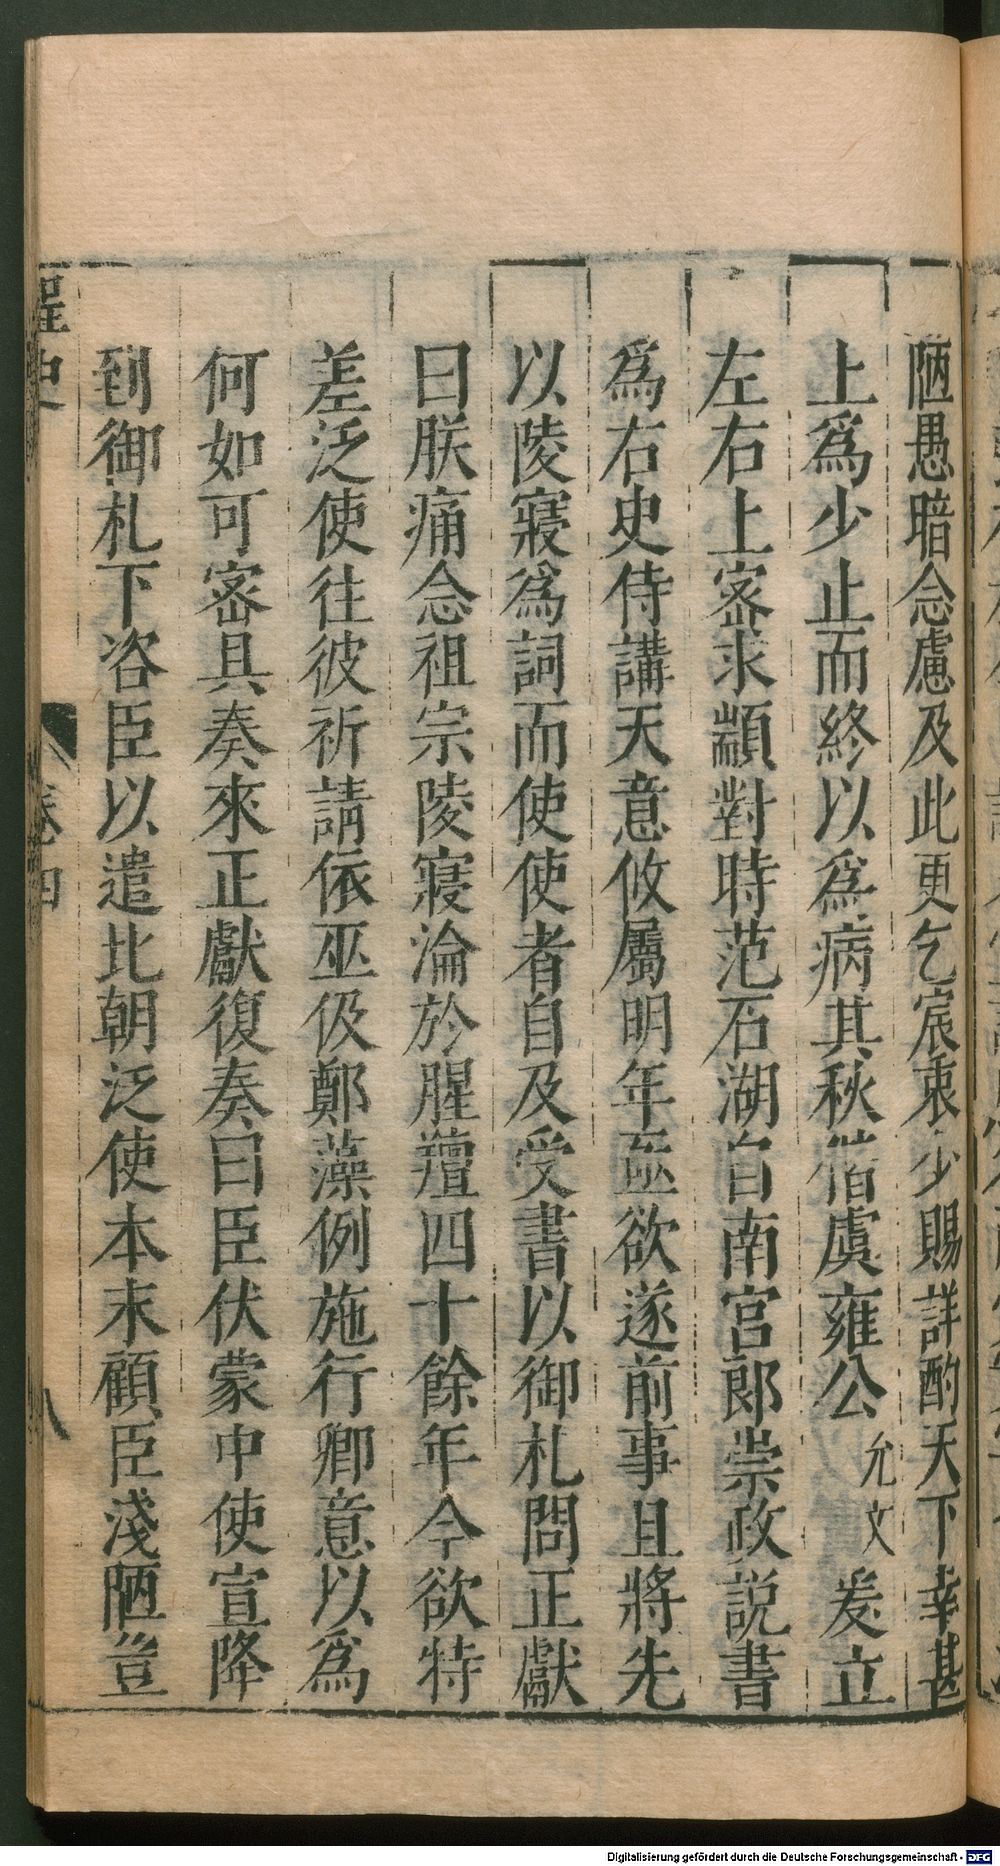 陋愚暗念慮及此更乞宸衷少賜詳酌天下幸甚
上爲少止而終以爲病其秋偕虞雍公允文爰立
左右上密求顓對時范石湖自南宮郎崇政説書
爲右史侍講天意攸屬明年亟欲遂前事且將先
以陵寢爲詞而使使者自及受書以御札問正獻
曰朕痛念祖宗陵寢淪於腥羶四十餘年今欲特
差泛使往彼祈請依巫伋鄭藻例施行卿意以爲
何如可密具奏來正獻復奏曰臣伏蒙中使宣降
到御札下咨臣以遣北朝泛使本末顧臣淺陋豈
桯史 卷四 八
Digitalisierung gefördert durch die Deutsche Forschungsgemeinschaft - DFG